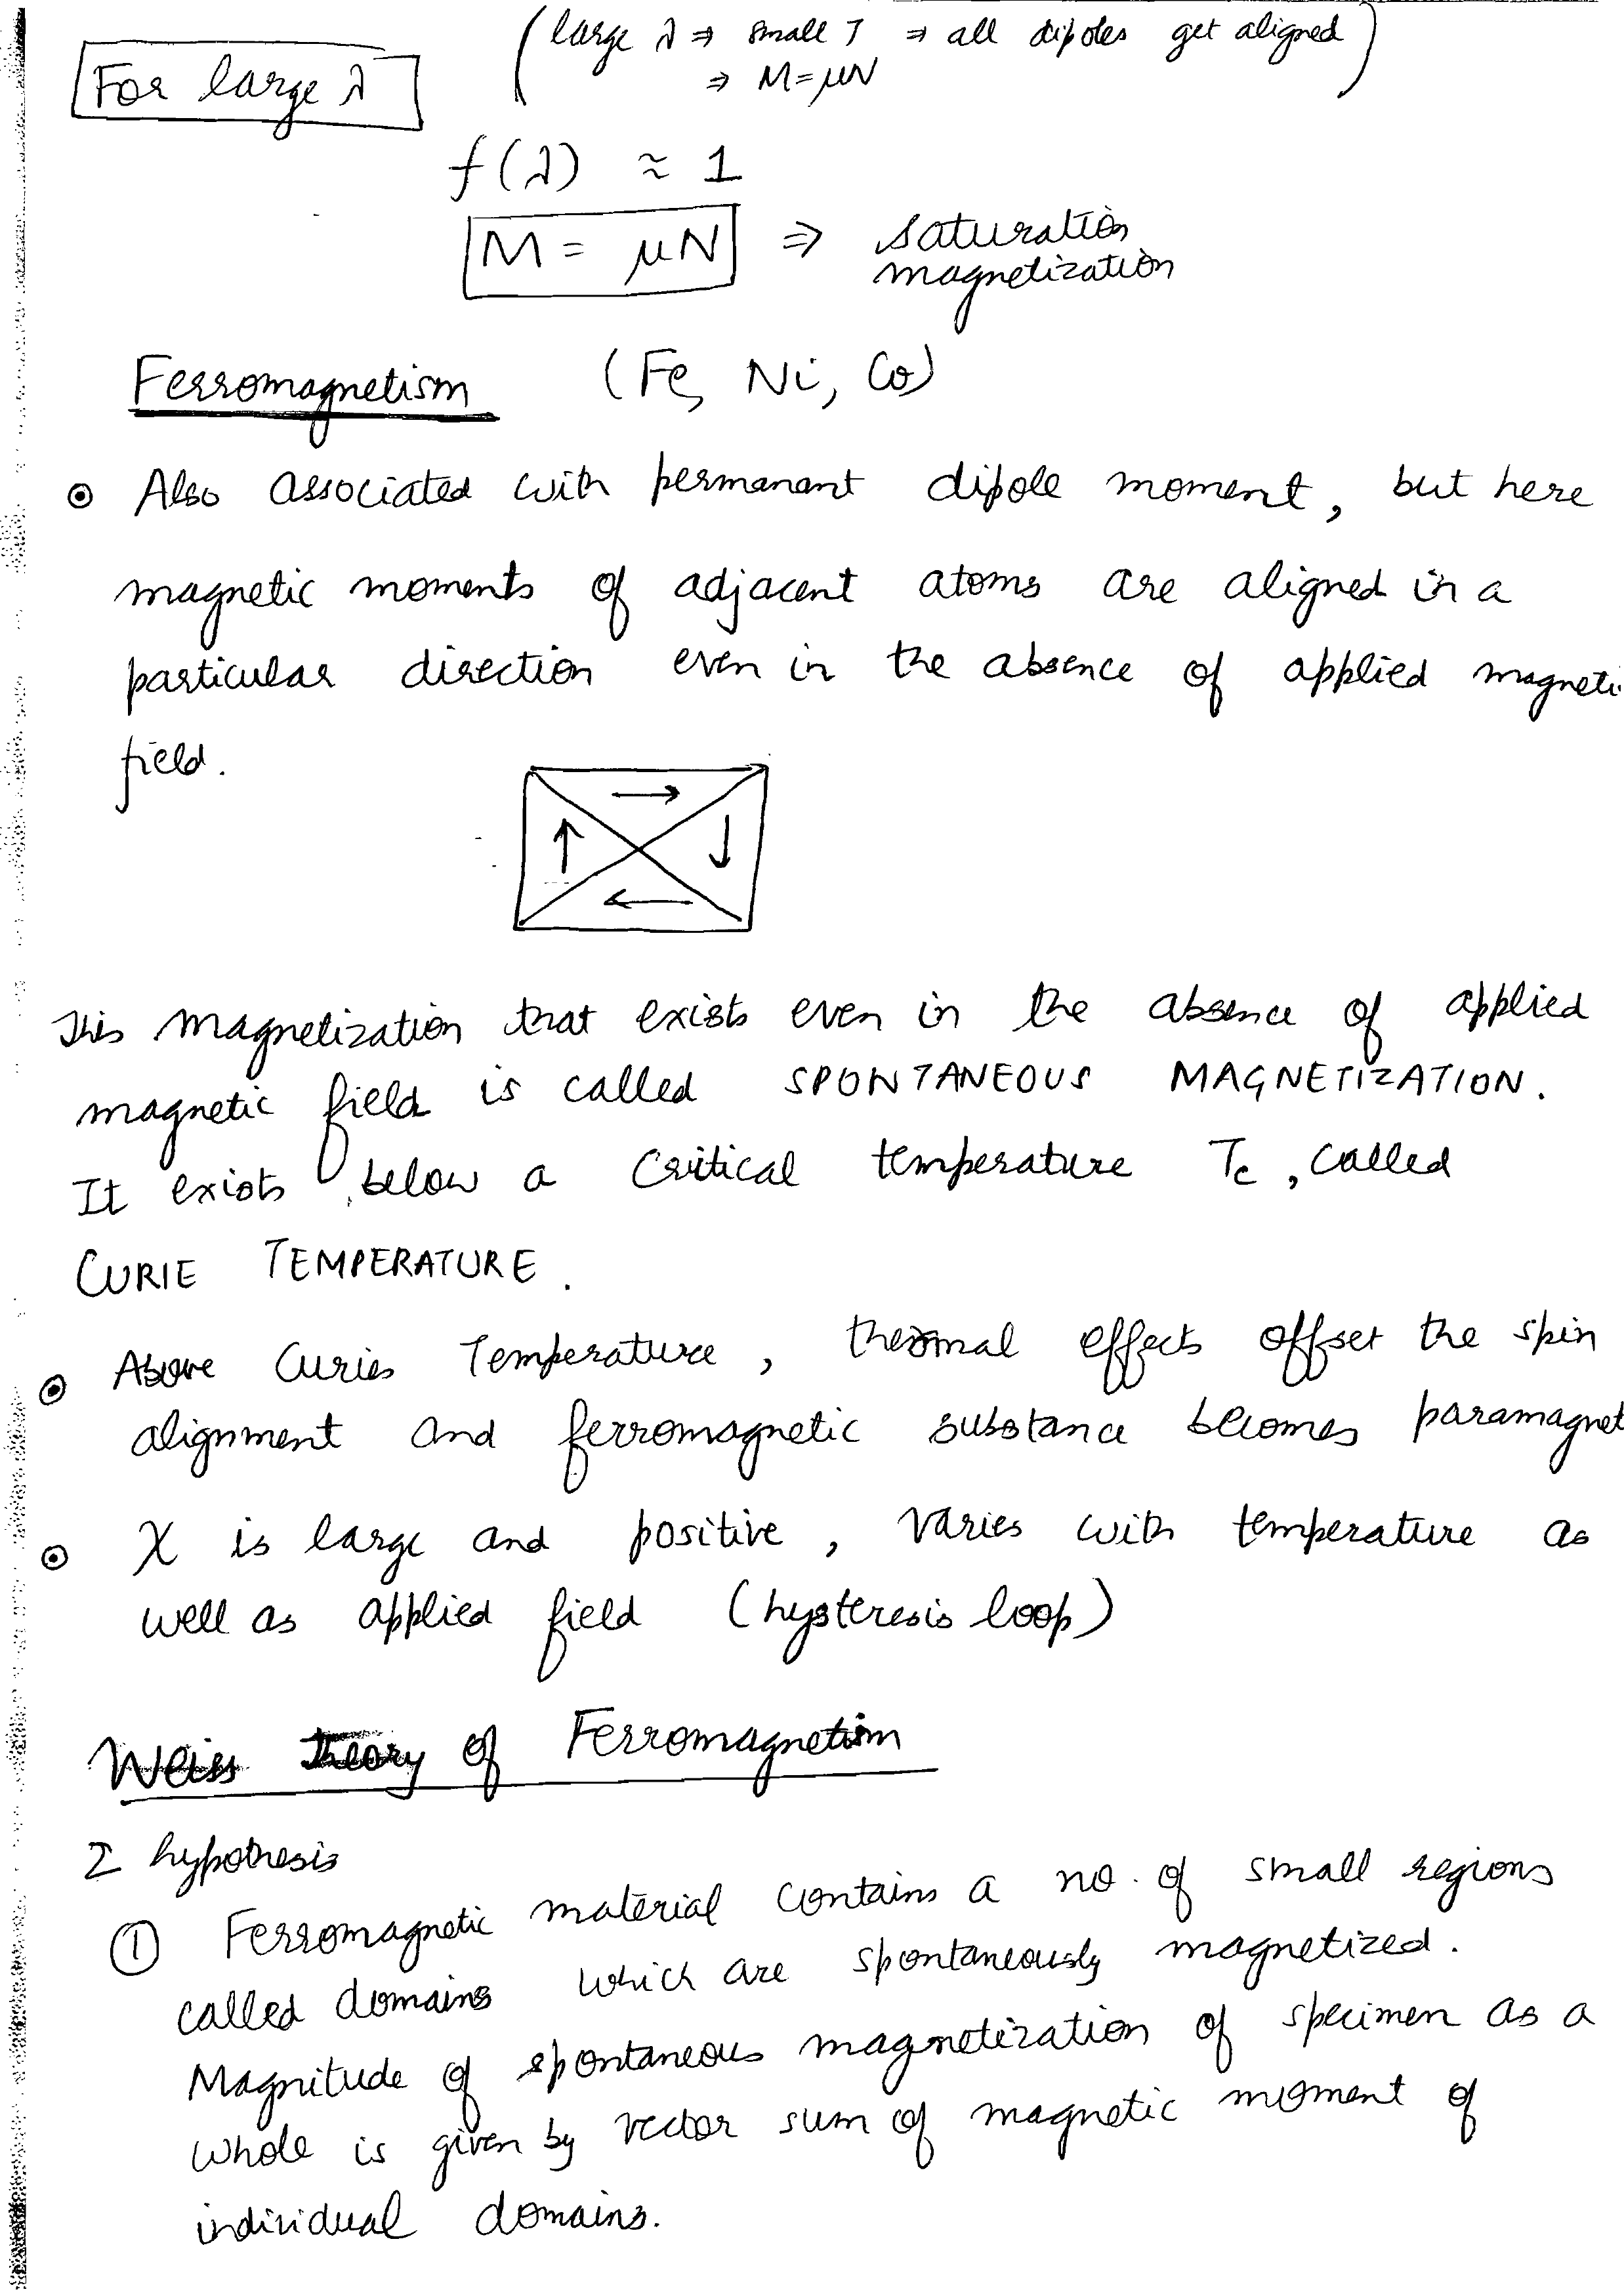 For large λ
(large λ ⇒ small T ⇒ all dipoles get aligned
⇒ M = μN)
f(λ) ≈ 1
M = μN ⇒ saturation
magnetization
Ferromagnetism (Fe, Ni, Co)
⊙ Also associated with permanant dipole moment, but here
magnetic moments of adjacent atoms are aligned in a
particular direction even in the absence of applied magneti
field.
→
↑ ↓
←
This magnetization that exists even in the absence of applied
magnetic field is called SPONTANEOUS MAGNETIZATION.
It exists below a critical temperature Tc, called
CURIE TEMPERATURE.
⊙ Above Curies Temperature, thermal effects offset the spin
alignment and ferromagnetic substance becomes paramagnet
⊙ χ is large and positive, varies with temperature as
well as applied field (hysteresis loop)
Weiss Theory of Ferromagnetism
2 hypothesis
① Ferromagnetic material contains a no. of small regions
called domains which are spontaneously magnetized.
Magnitude of spontaneous magnetization of specimen as a
whole is given by vector sum of magnetic moment of
individual domains.